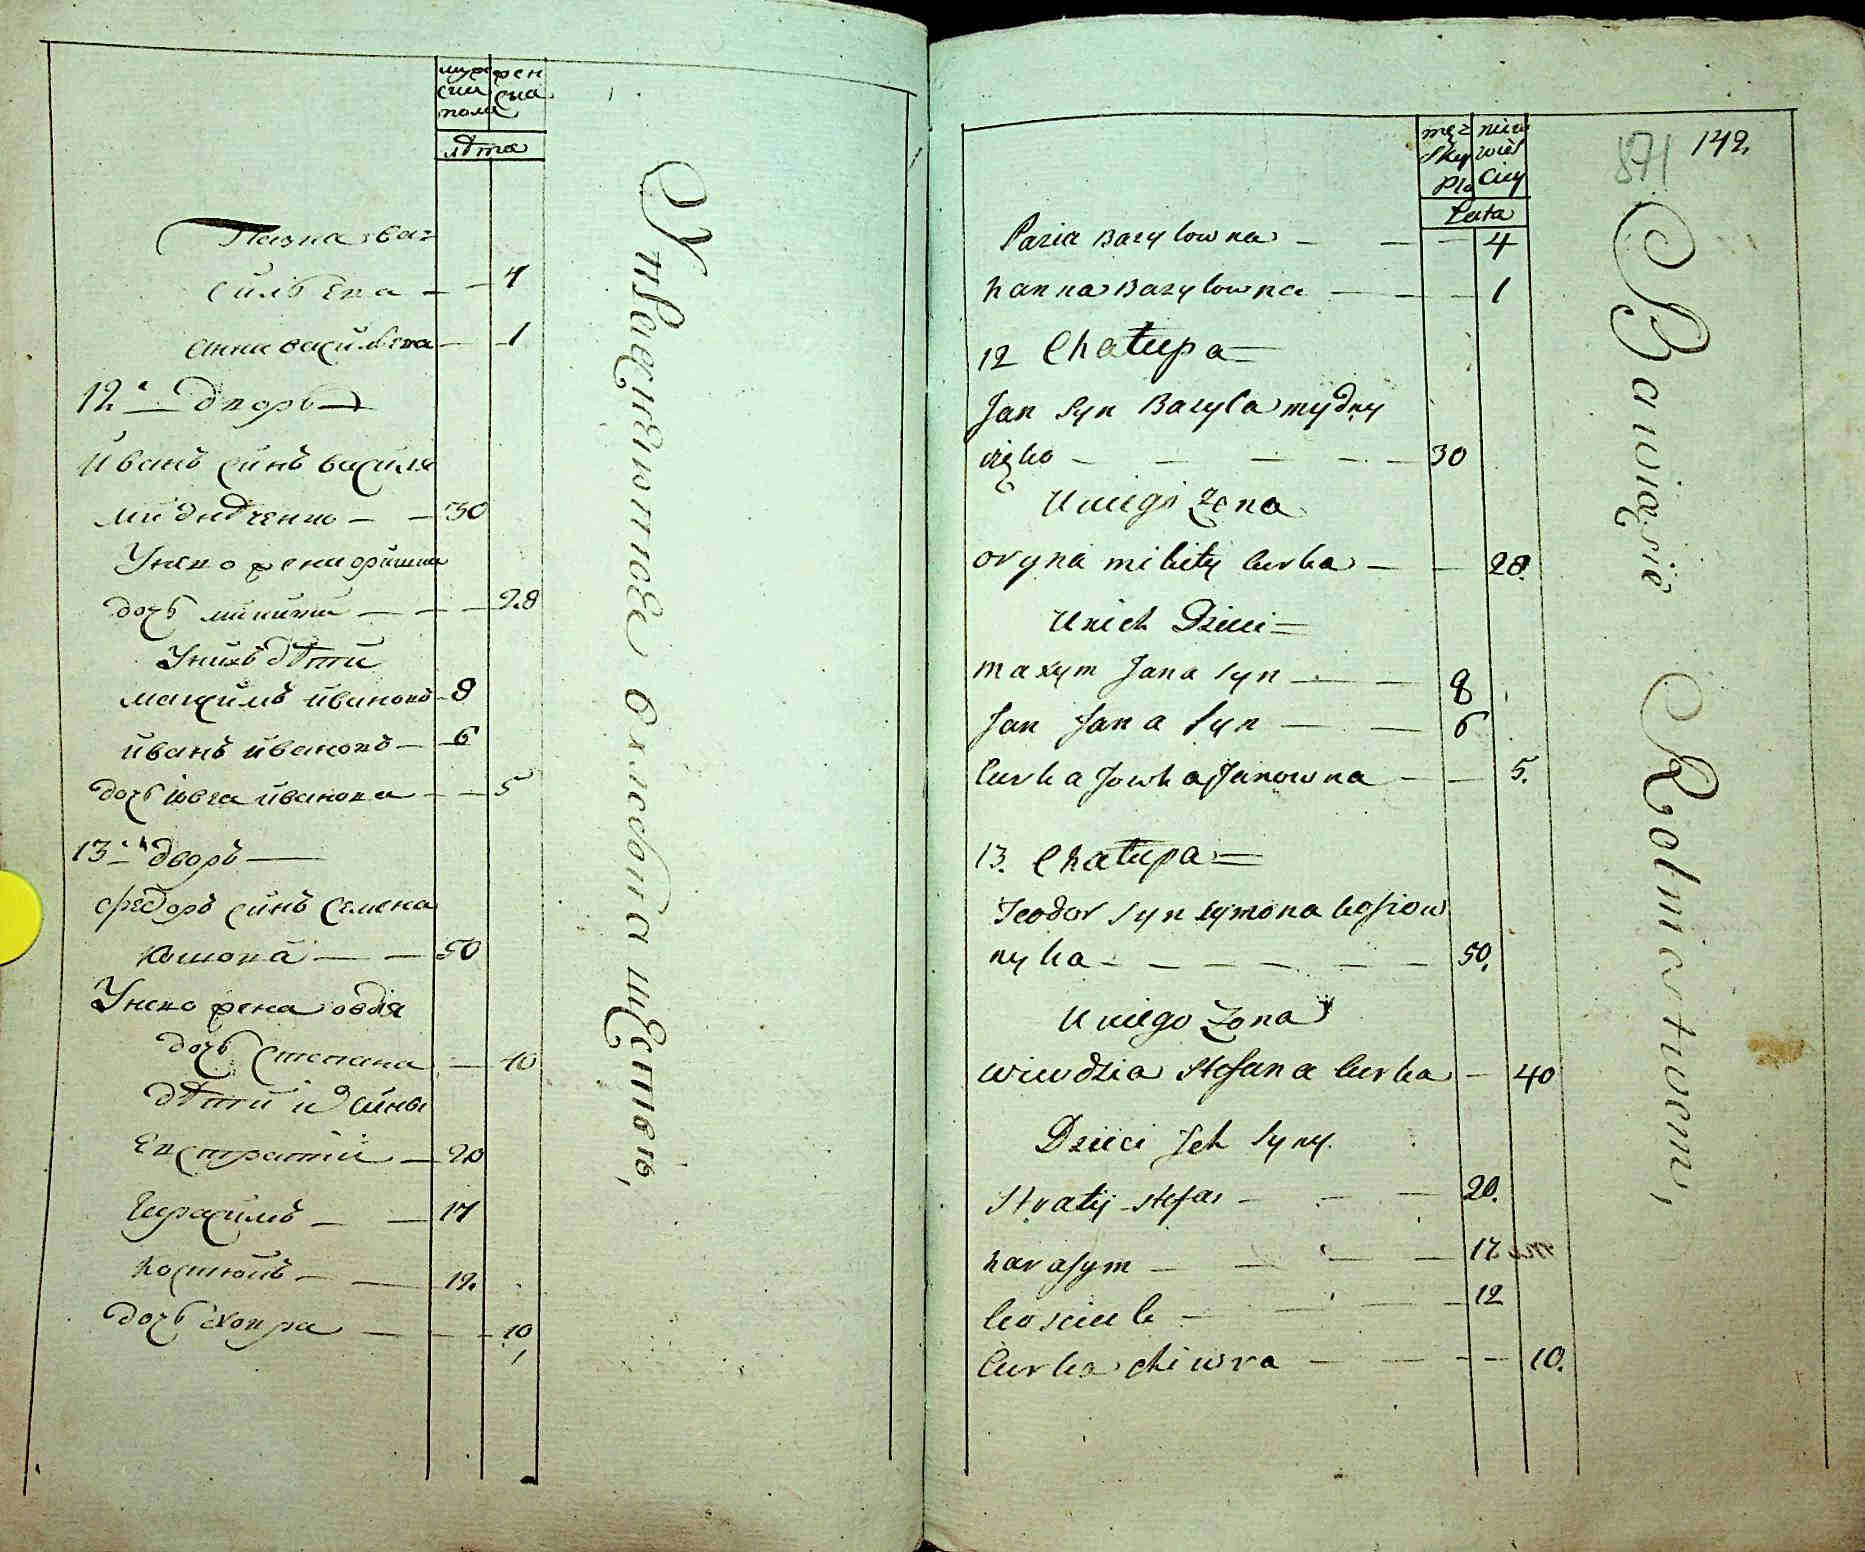 муже
ска
пола
жен
ска
лѣта
Пазна ва=
сильевна — — 4
Анна васильевна — — 1
12.й Дворъ —
Иванъ синъ василя
мидѣченко — — 30
У него жена оришка
дочь микити — — — 28
У нихъ дѣти
максимъ ивановъ — 8
иванъ ивановъ — 6
дочь ївга иванова — — 5
13.й дворъ —
Федоръ синъ Семена
— — 50
У него жена овдя
дочь Степана — 40
дѣти ихъ сины
Евстратий — 20
Герасимъ — — 17
Костюкъ — — 12.
дочь Хов ра — — — 10
Утвержденное охлебита шестью,
142.
871
męz
skey
Płc
niew
wieś
ciey
Lata
Pazia Bazylowna — — — 4
hanna Bazylowna — — — 1
12 Chałupa =
Jan Syn Bazyla mydny
częko — — — — — 30
U niego Żona
oryna mikity Curka — — 28.
U nich Dzieci =
maxym Jana Syn — — 8
Jan Jana Syn — — 6
Curka Jowka Janowna — — 5.
13. Chałupa =
Teodor Syn Symona kosiow
nyka — — — — — — 50.
U niego Żona
wiewdzia Stefana Curka — 40
Dzieci Jch Syny.
Stratij — — — 20.
harasym — — — — 17
kosciuk — — — — 12
Curka chiwra — — — — 10.
Bawiące Rotmistrwem,